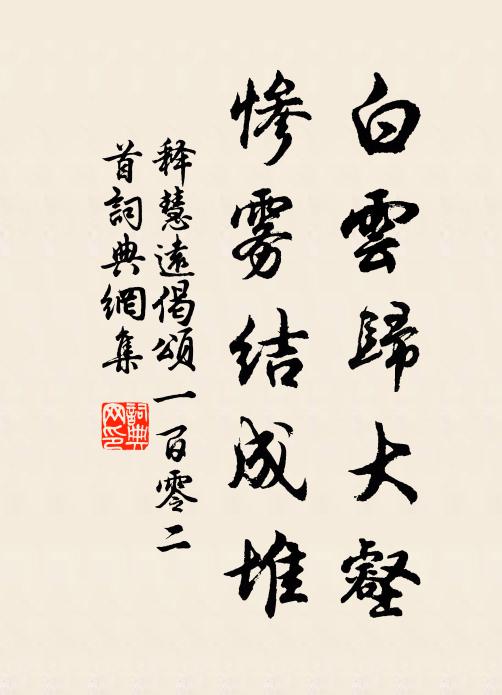 白雲歸大壑
慘雾結成堆
释慧遠偈頌一百零二
首詞典網集
詞典
网印